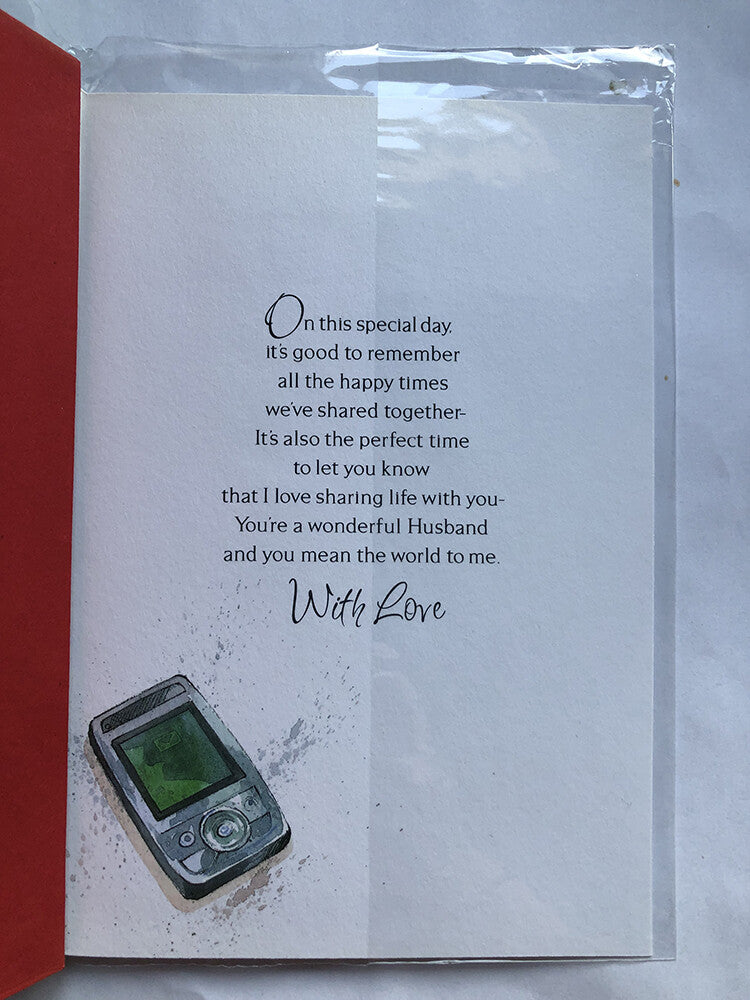 On this special day,
it's good to remember
all the happy times
we've shared together-
It's also the perfect time
to let you know
that I love sharing life with you-
You're a wonderful Husband
and you mean the world to me.
With Love